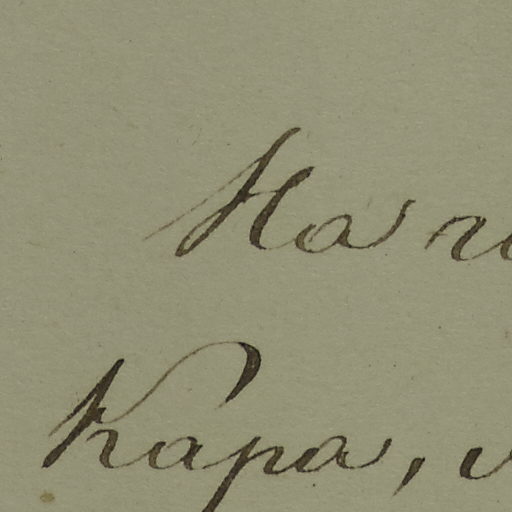 На
Кара,